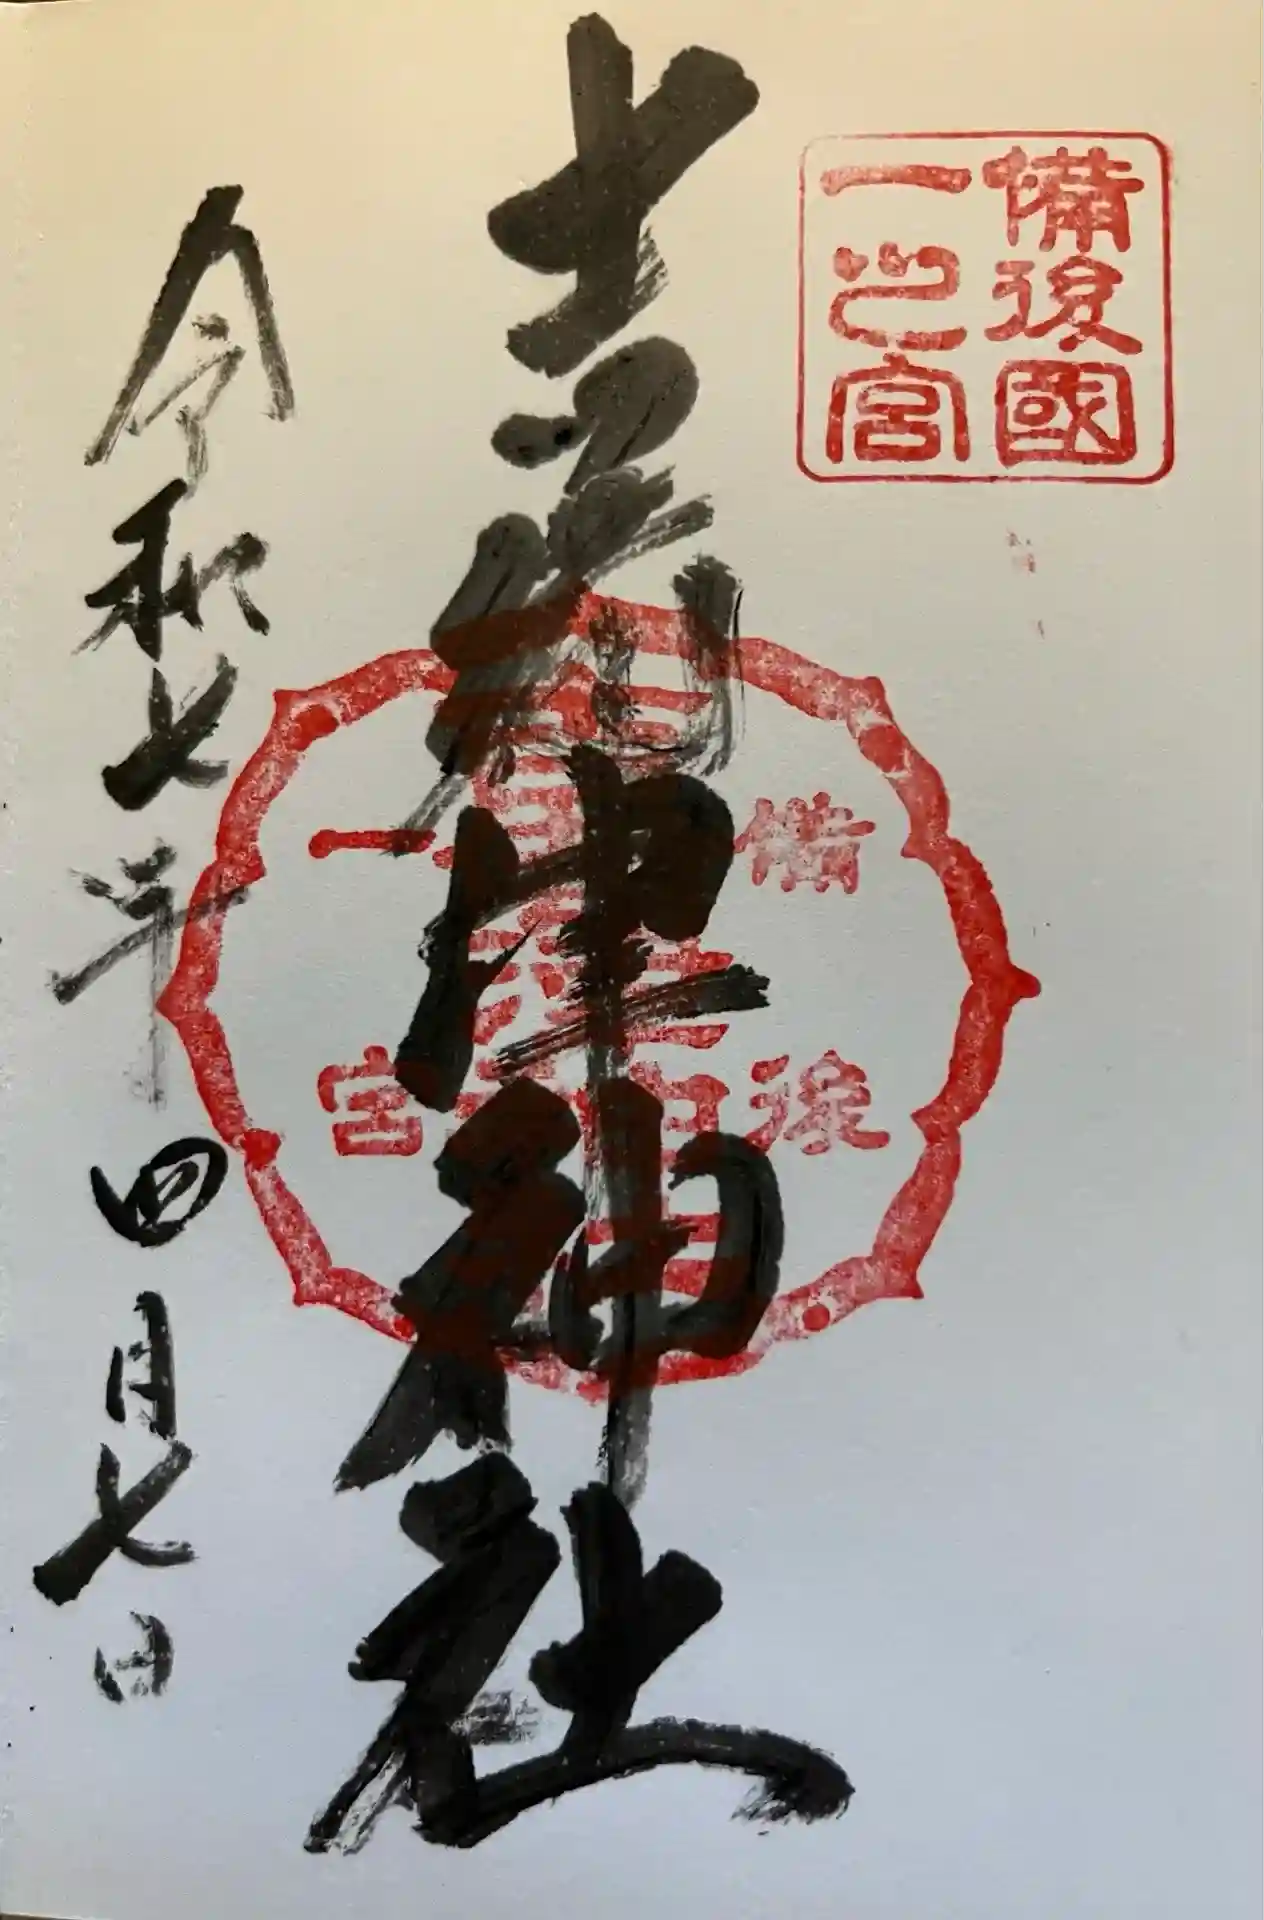 備後國
一之宮
吉備津神社
備後
一宮
令和七年四月七日